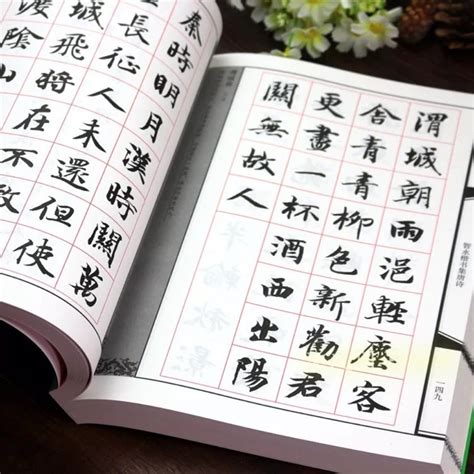 秦時明月漢時關萬
長征人未還但使
城飛將在不教
陰山
渭城朝雨浥輕塵客
舍青青柳色新勸君
更盡一杯酒西出陽
關無故人
智永楷书集唐诗
一四九